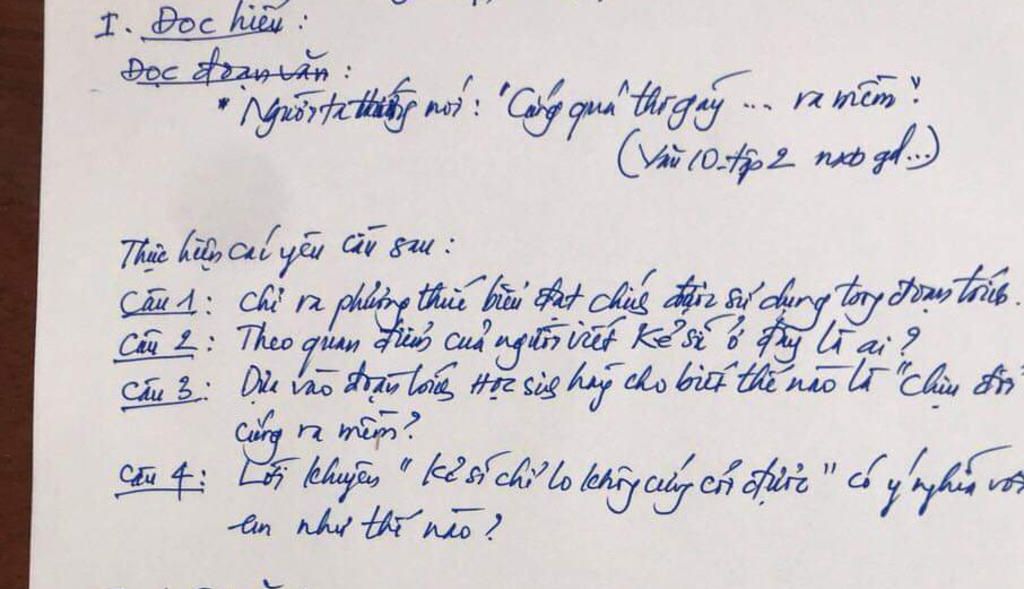 I. Đọc hiểu:
Đọc đoạn văn:
* Người ta thường nói: "Cứng quá thì gãy ... ra mềm".
(Văn 10 - tập 2 nxb gd...)
Thực hiện các yêu cầu sau:
Câu 1: Chỉ ra phương thức biểu đạt chính được sử dụng trong đoạn trích.
Câu 2: Theo quan điểm của người viết Kẻ sĩ ở đây là ai?
Câu 3: Dựa vào đoạn trích Học sinh hãy cho biết thế nào là "chịu đổi
cứng ra mềm?
Câu 4: Lời khuyên "Kẻ sĩ chỉ lo không cứng cỏi được" có ý nghĩa với
em như thế nào?